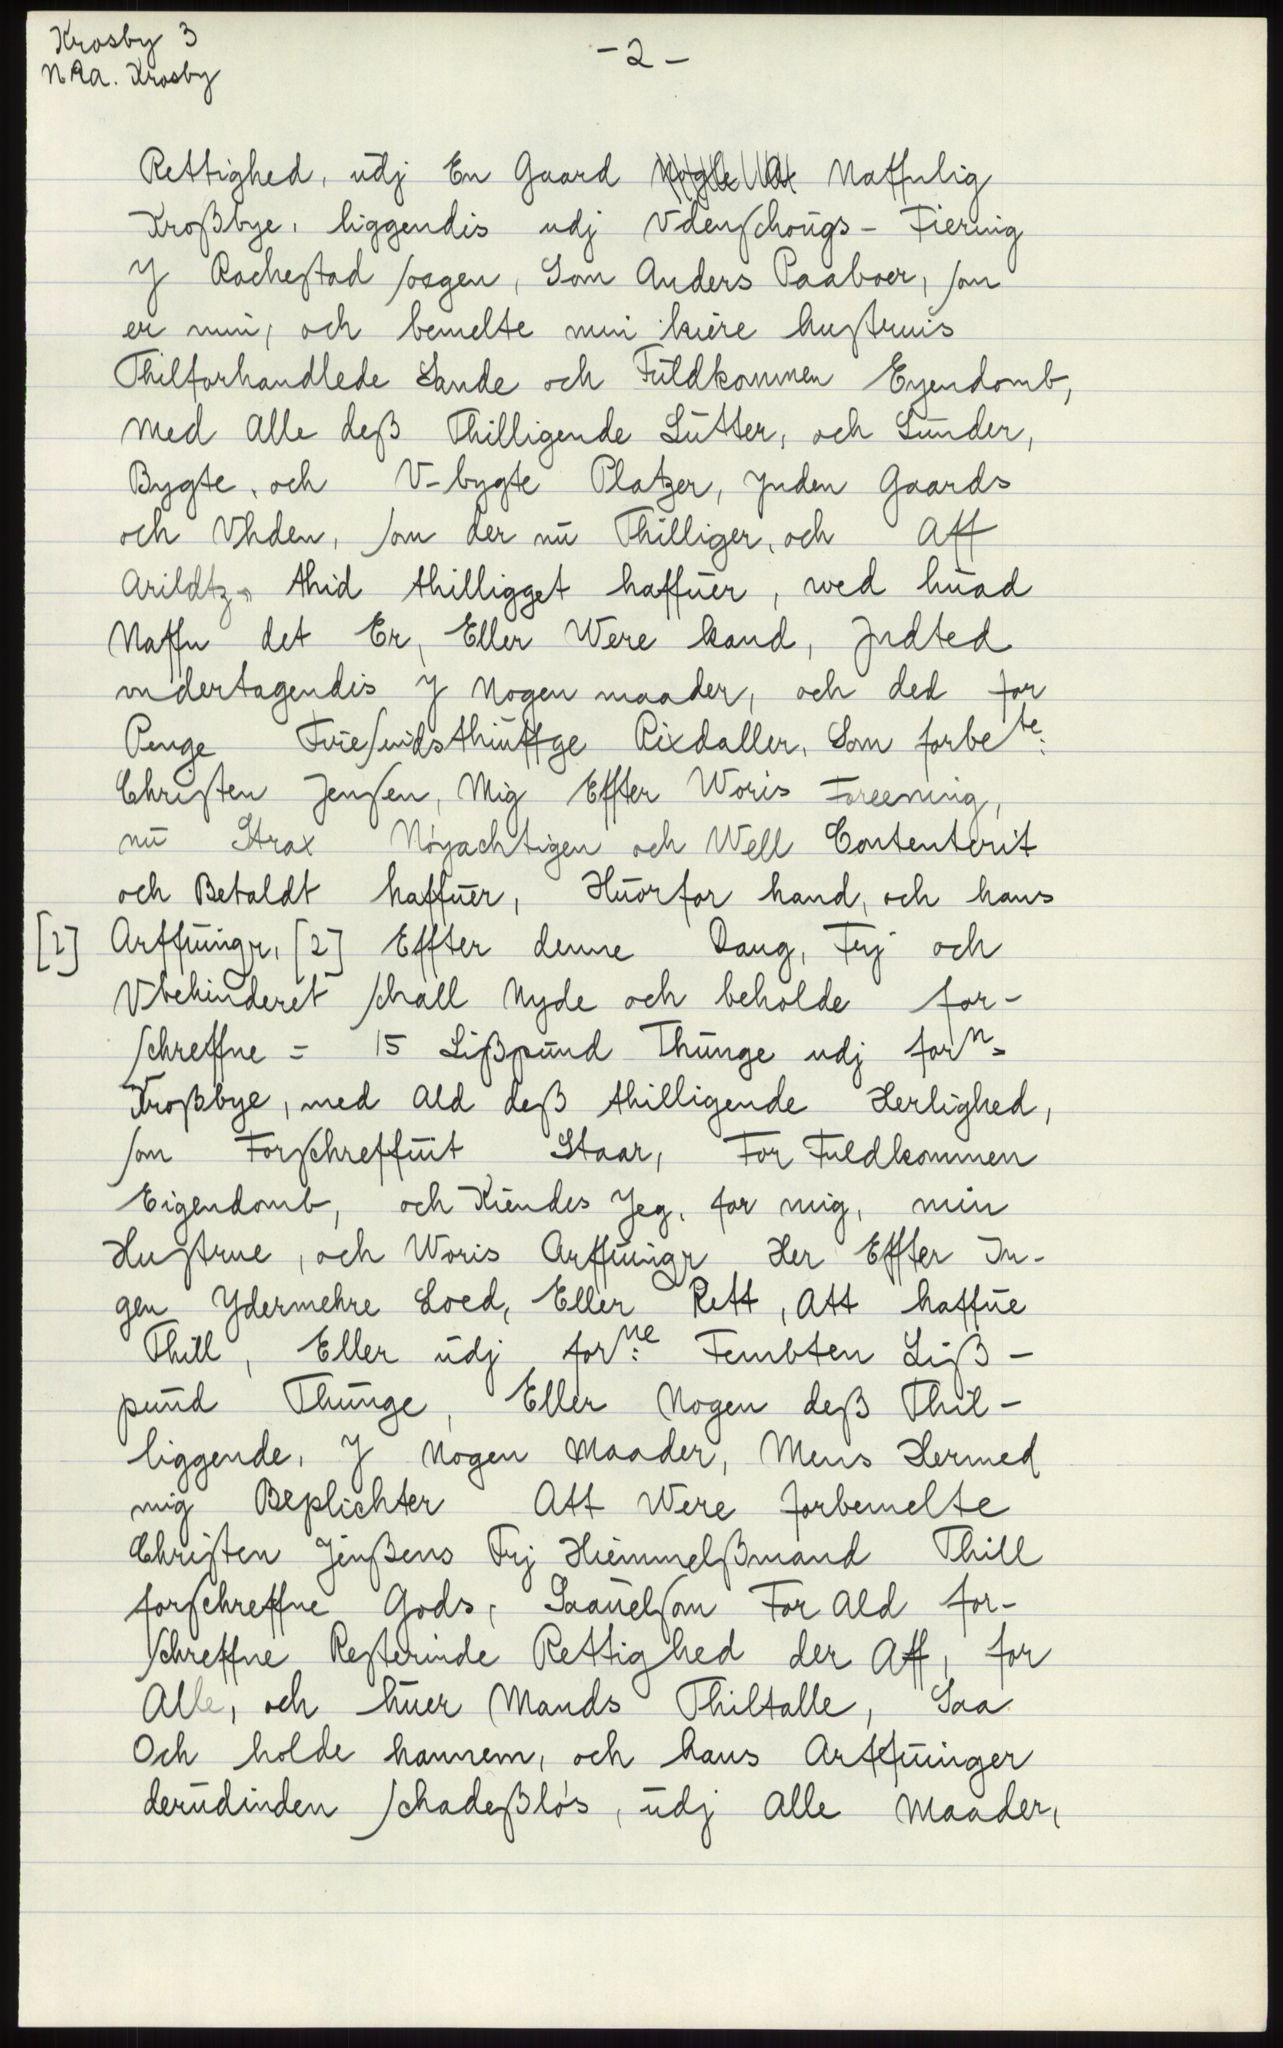 Krosby 3
NRA. Krosby
- 2 -
Rettighed, udj En Gaard Naffnlig
Kroßbye, liggendis udj Vdenschougs - Fiering
J Rachestad sogen, Som Anders Paaboer, som
er min, och bemelte min kiere hustruis
Thilforhandlede Sande och Fuldkommen Eyendomb,
med Alle deß Thilligende Lutter, och Lunder,
Bygte, och V-bygte Platzer, Jnden Gaards
och Vhden, som der nu Thilliger, och Aff
Arildtz thid thilligget haffuer, wed huad
Naffn det Er, Eller Were kand, Jndted
vndertagendis J Nogen maader, och ded for
Penge Rixdaller, Som forbete:
Christen Jensen, Mig Effter Woris Foreening,
nu Strax Nöyachtigen och Well Contenterit
och Betaldt haffuer, Huorfor hand, och hans
[1] Arffuingr, [2] Effter denne Daug, Frj och
Vbehinderet schall Nyde och beholde for-
schreffne = 15 Lißpund Thunge udj forn=
Kroßbye, med Ald deß thilligende Herlighed,
som Forschreffuit Staar, For Fuldkommen
Eigendomb, och Kiendes Jeg, for mig, min
Hustrue, och Woris Arffuingr Her Effter In-
gen Ydermehre Loed, Eller Rett, Att haffue
Thill, Eller udj forne: Fembten Liß-
pund Thunge, Eller Nogen deß Thil-
liggende, J Nogen Maader, Mens Hermed
mig Beplichter Att Were forbemelte
Christen Jenßens Frj Hiemmelßmand Thill
forschreffne Gods, Saauelsom For Ald for-
schreffne Resterinde Rettighed der Aff, for
Alle, och huer Mands Thiltalle, Saa
Och holde hannem, och hans Arffuinger
derudinden schadeßlös, udj Alle Maader,